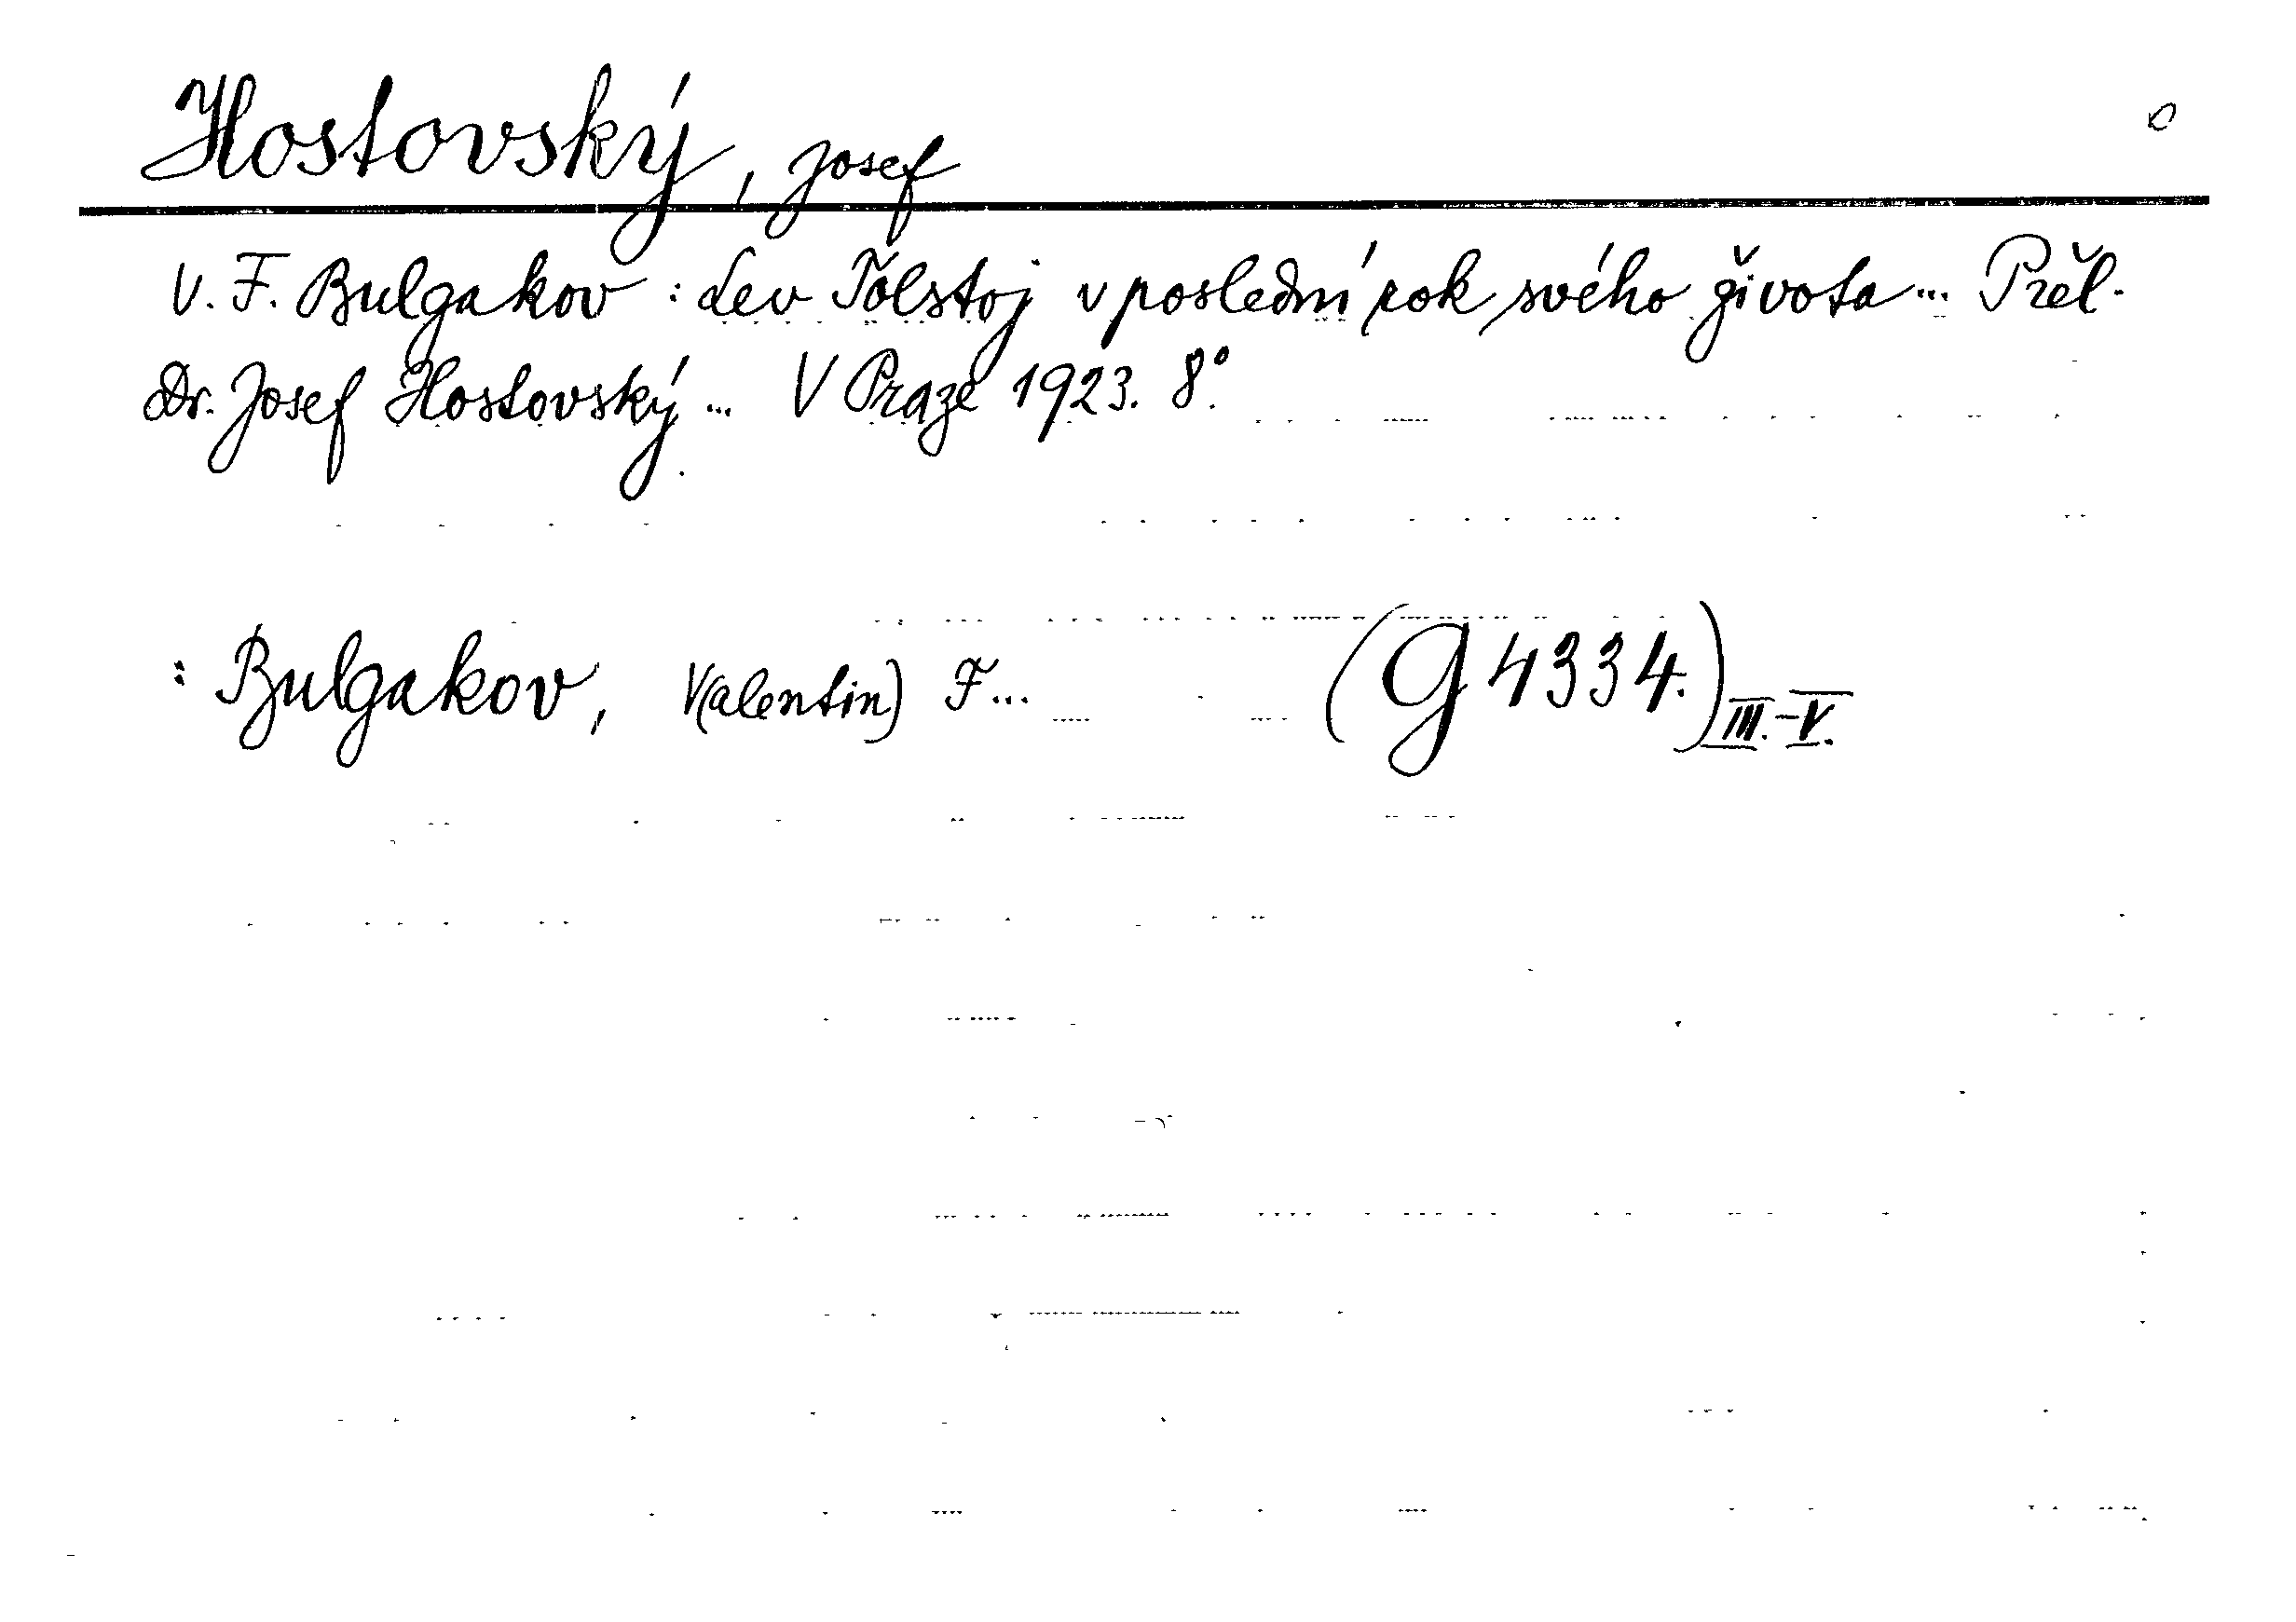 Hostovský, Josef
V. F. Bulgakov: Lev Tolstoj v poslední rok svého života... Přel.
Dr. Josef Hostovský... V Praze 1923. 8°.
: Bulgakov, V(alentin) F... (G 4334.) III.-V.